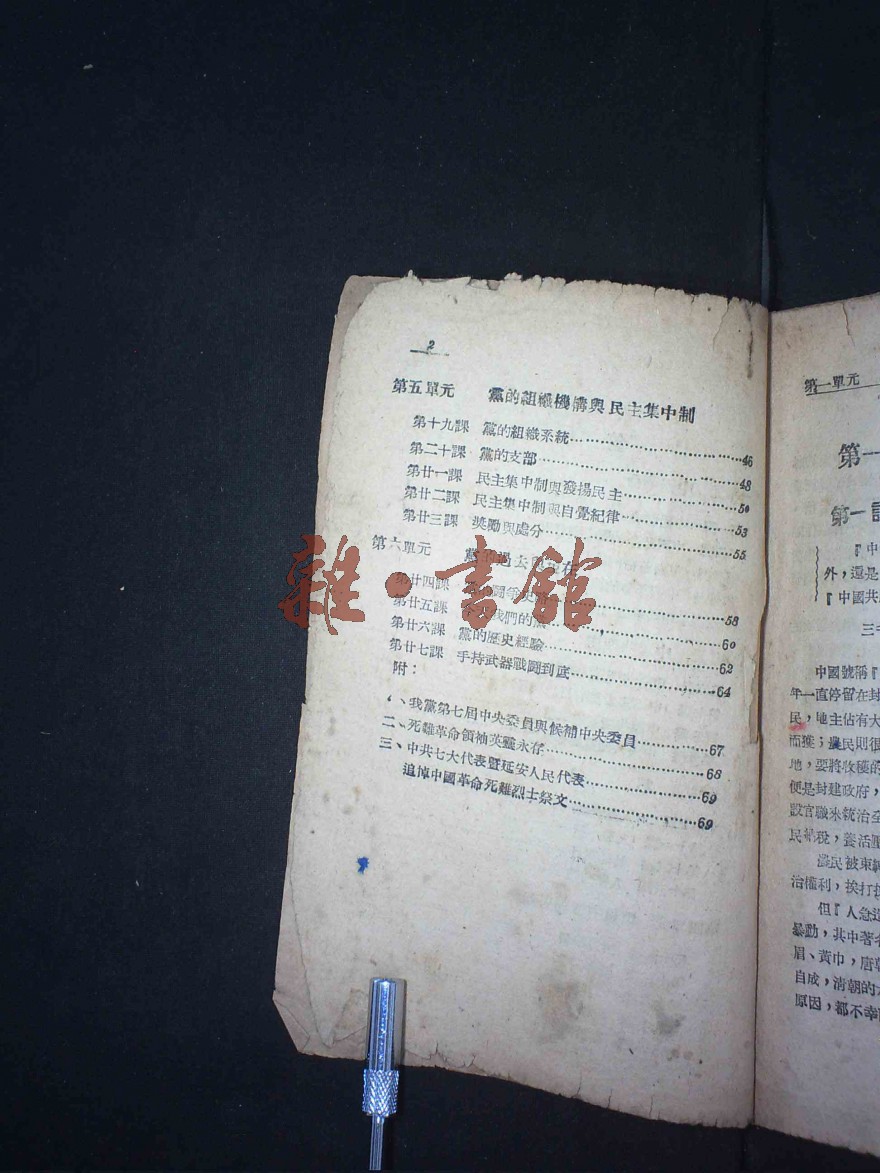 2
第五單元 黨的組織機構與民主集中制
第十九課 黨的組織系統……46
第二十課 黨的支部……48
第廿一課 民主集中制與發揚民主……50
第廿二課 民主集中制與自覺紀律……53
第廿三課 獎勵與處分……55
第六單元 黨的過去與現在
第廿四課 鬥爭史……58
第廿五課 我們的黨……60
第廿六課 黨的歷史經驗……62
第廿七課 手持武器戰鬪到底……64
附:
、我黨第七屆中央委員與候補中央委員……67
二、死難革命領袖英靈永存……68
三、中共七大代表暨延安人民代表……69
追悼中國革命死難烈士祭文……69
雜·書館
第一單元
第一
第一課
『中
外,還是
『中國共
三
中國號稱『
年一直停留在封
民,地主佔有大
而獲;農民則很
地,要將收穫的
便是封建政府,
設官職來統治全
民納稅,養活
農民被束縛
治權利,挨打
但『人急造
暴動,其中著名
眉、黃巾,唐朝
自成,清朝的太
原因,都不幸